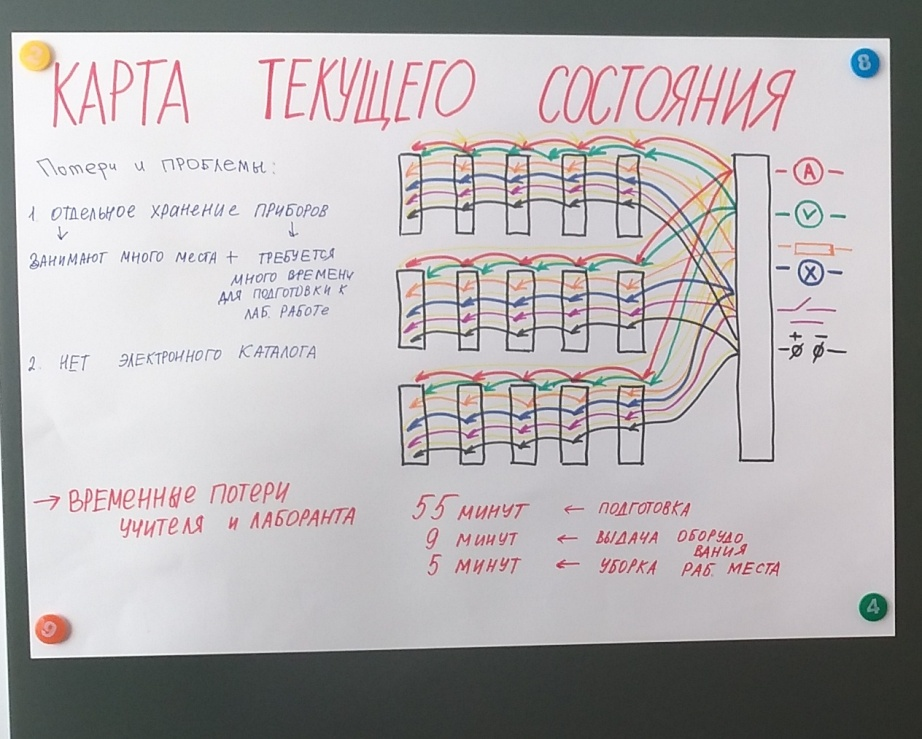 КАРТА ТЕКУЩЕГО СОСТОЯНИЯ
Потери и ПРОБЛЕМЫ:
1. ОТДЕЛЬНОЕ ХРАНЕНИЕ ПРИБОРОВ
↓ ↓
ЗАНИМАЮТ МНОГО МЕСТА + ТРЕБУЕТСЯ
МНОГО ВРЕМЕНИ
ДЛЯ ПОДГОТОВКИ К
ЛАБ. РАБОТЕ
2. НЕТ ЭЛЕКТРОННОГО КАТАЛОГА
→ ВРЕМЕННЫЕ ПОТЕРИ
УЧИТЕЛЯ И ЛАБОРАНТА
A
V
X
+ −
55 МИНУТ ← ПОДГОТОВКА
9 МИНУТ ← ВЫДАЧА ОБОРУДО
ВАНИЯ
5 МИНУТ ← УБОРКА РАБ. МЕСТА
8
9
4